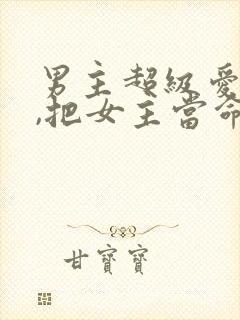 男主超級愛
,把女主當命
甘寶寶